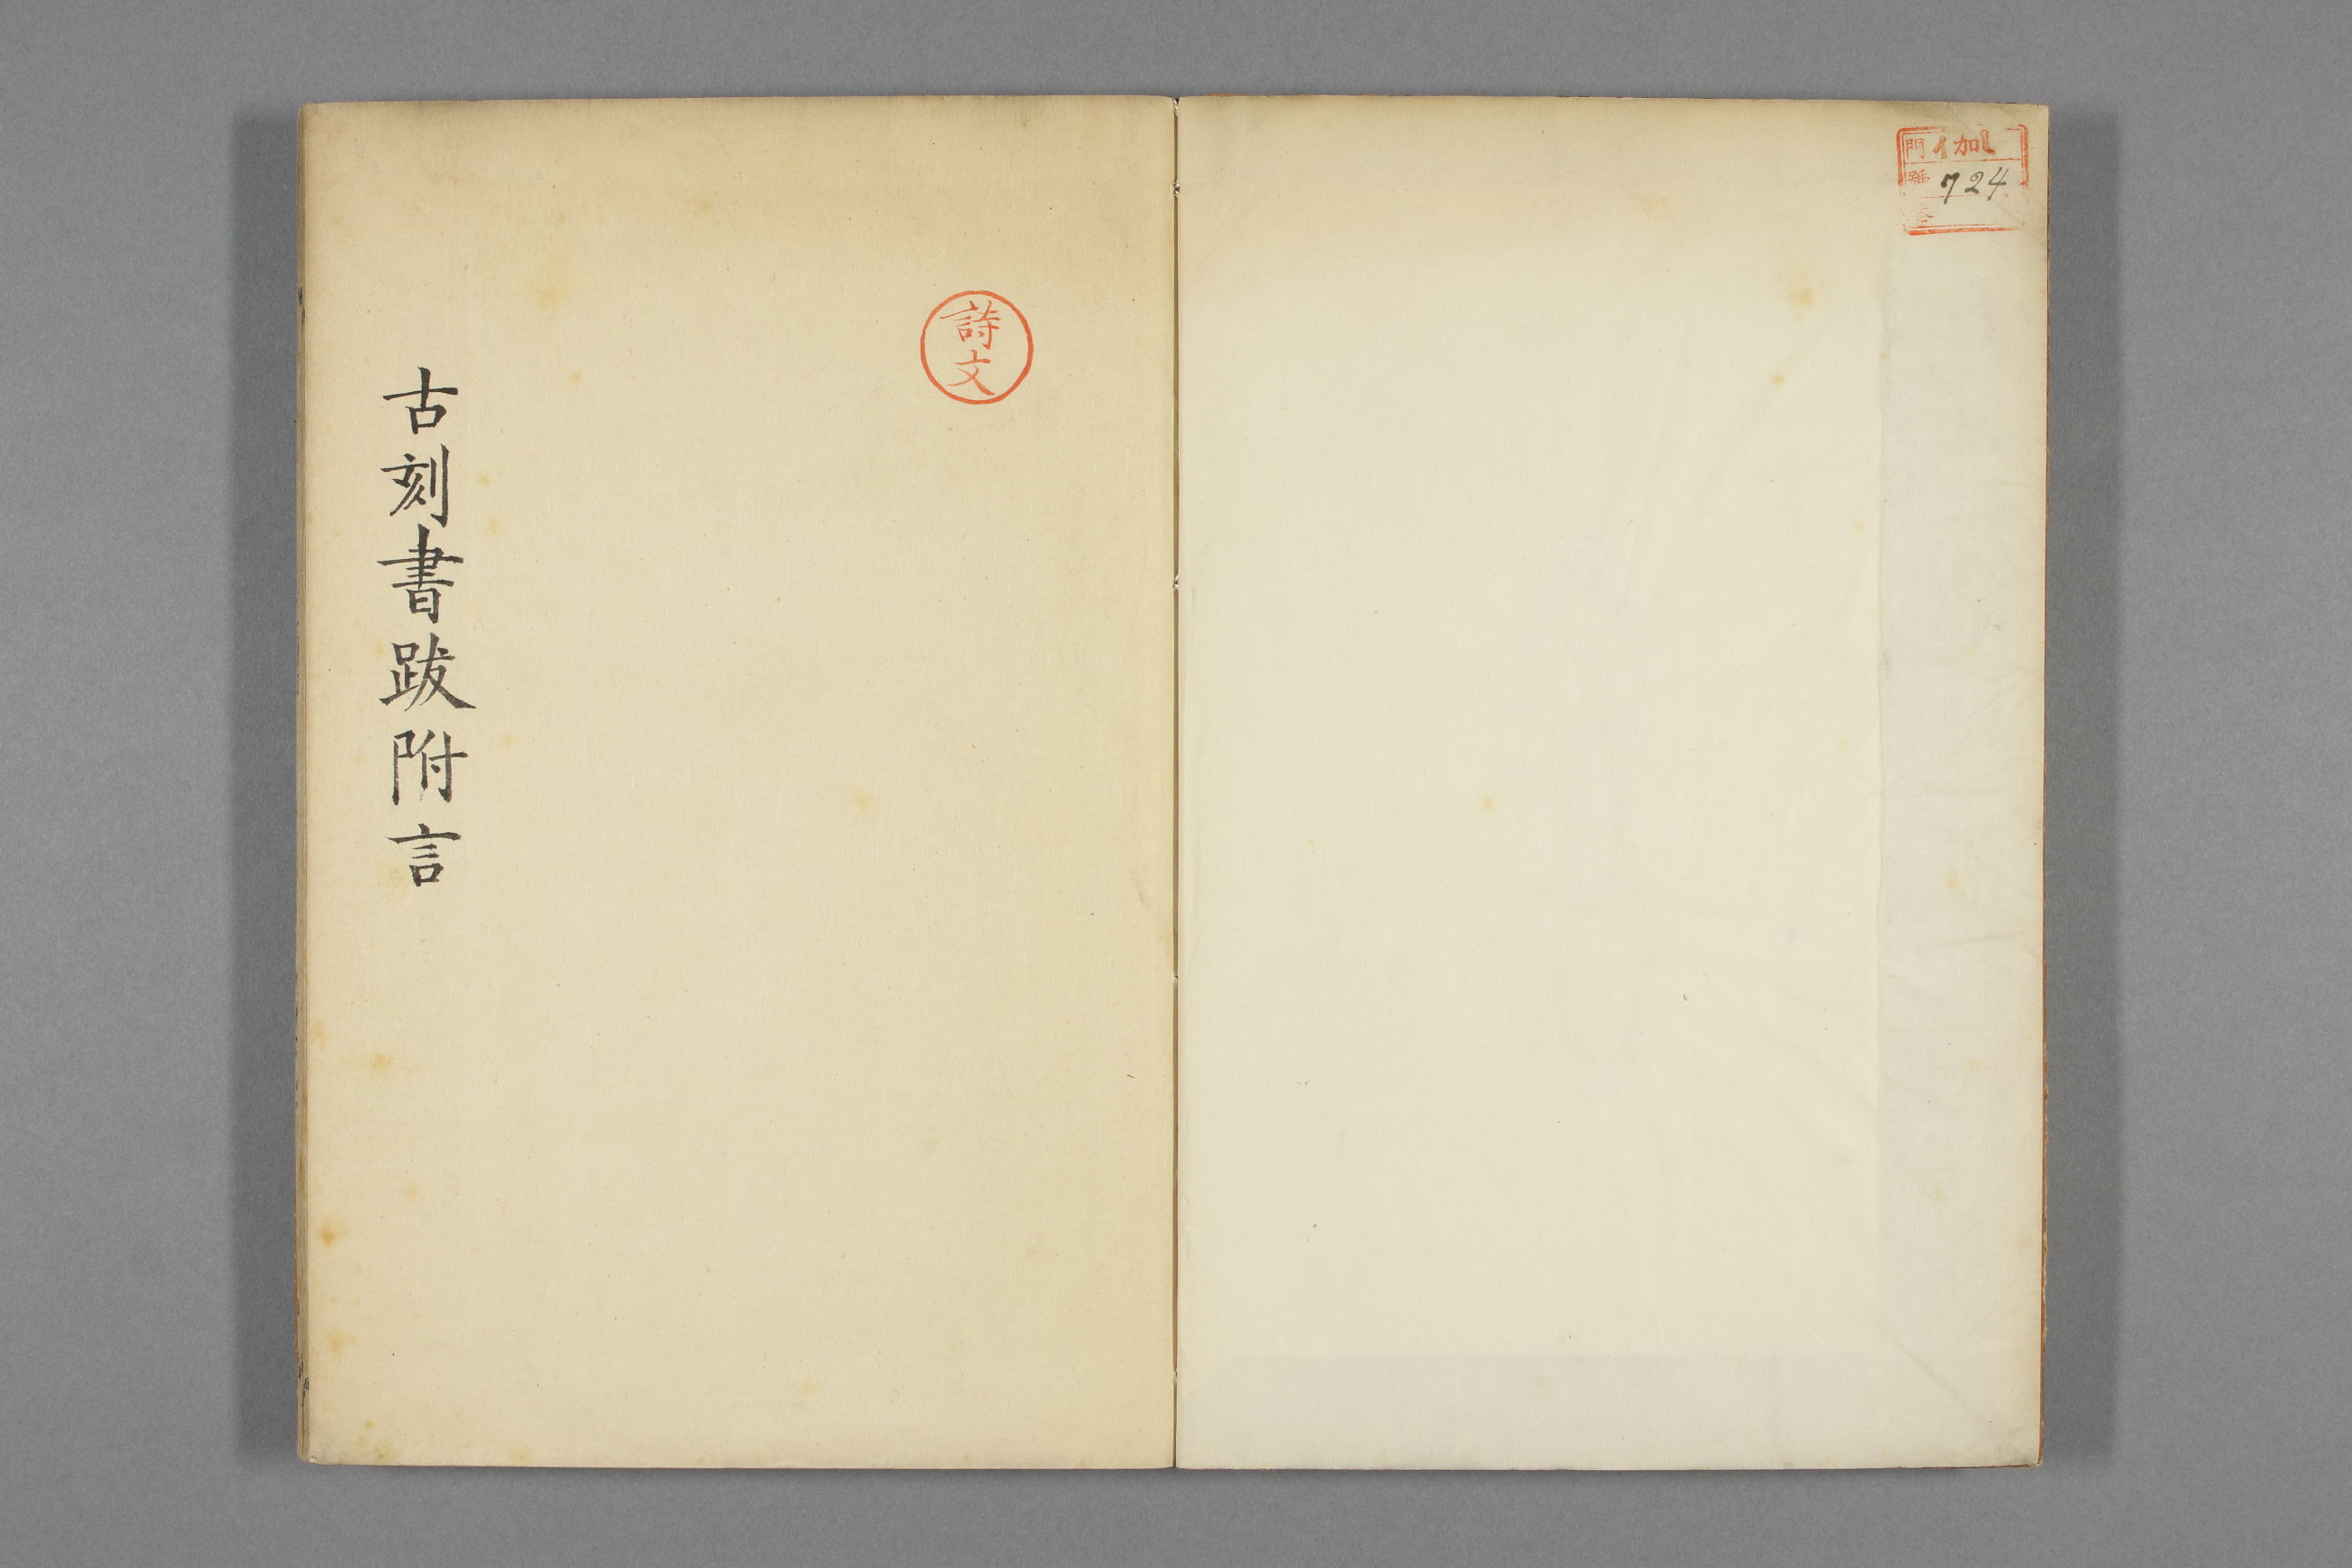 門 伽
號 724
巻
詩文
古刻書跋附言